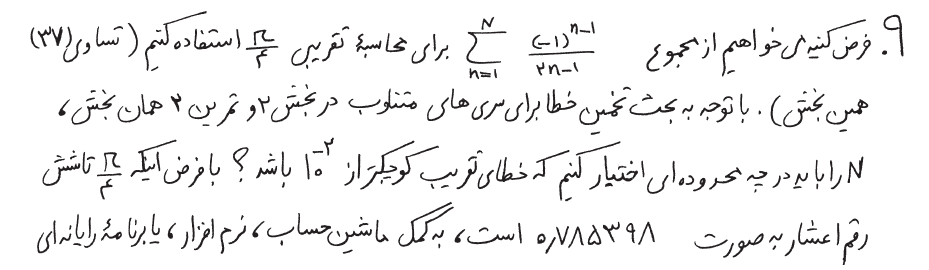 ۹. فرض کنید می خواهیم از مجموع $\sum_{n=1}^{N} \frac{(-1)^{n-1}}{2n-1}$ برای محاسبهٔ تقریبی $\frac{\pi}{4}$ استفاده کنیم (تساوی (۳۷)
همین بخش). با توجه به بحث تخمین خطا برای سری های متناوب در بخش ۲ و تمرین ۲ همان بخش،
N را باید در چه محدوده ای اختیار کنیم که خطای تقریب کوچکتر از $10^{-2}$ باشد؟ با فرض اینکه $\frac{\pi}{4}$ تا شش
رقم اعشار به صورت ۰٫۷۸۵۳۹۸ است، به کمک ماشین حساب، نرم افزار، یا برنامهٔ رایانه ای